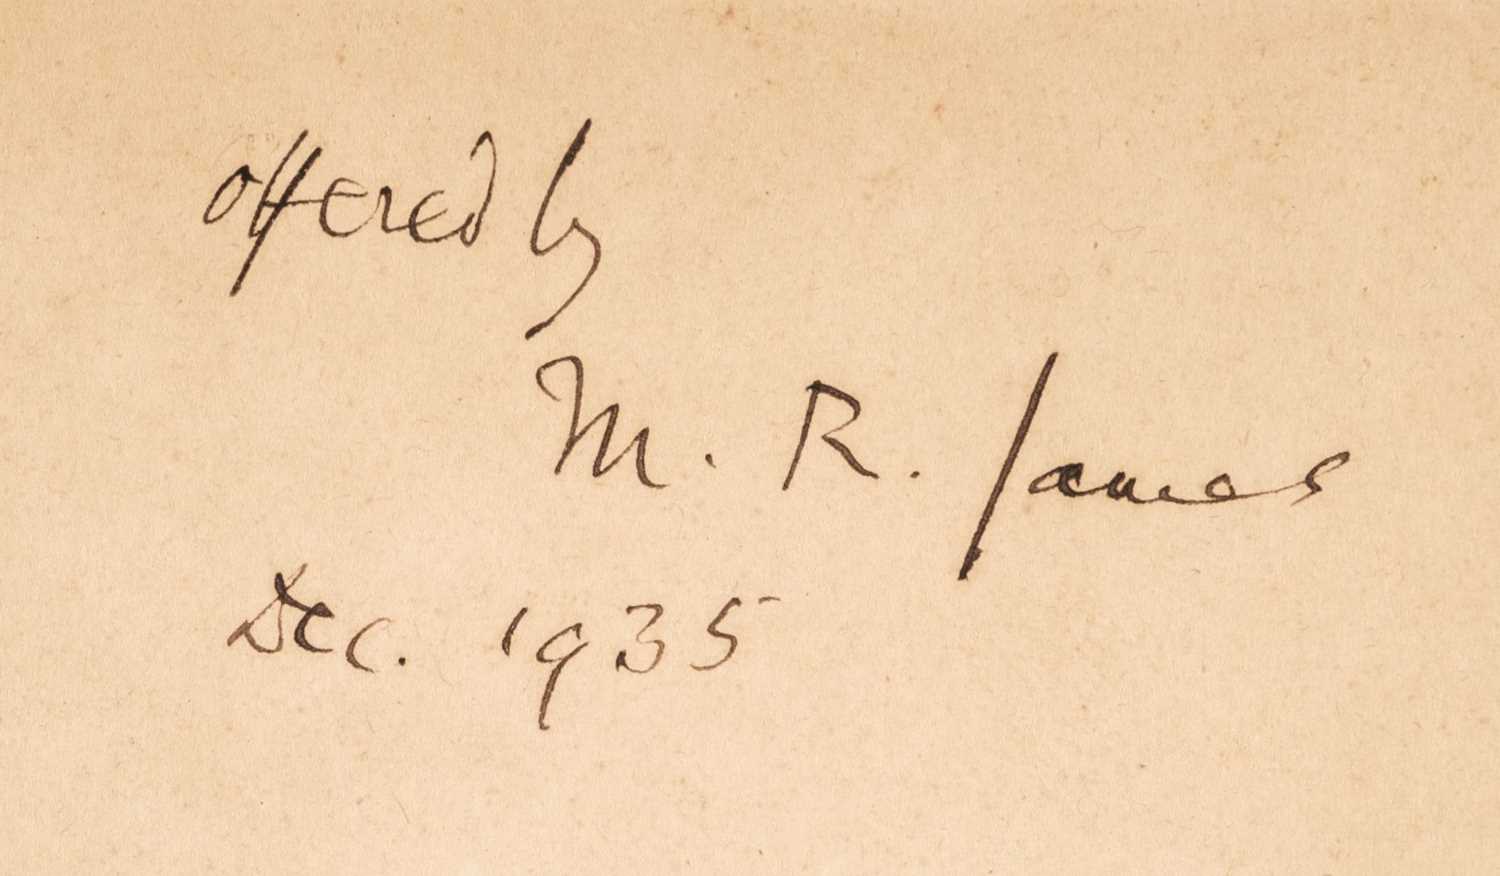 offered by
M. R. James
Dec. 1935